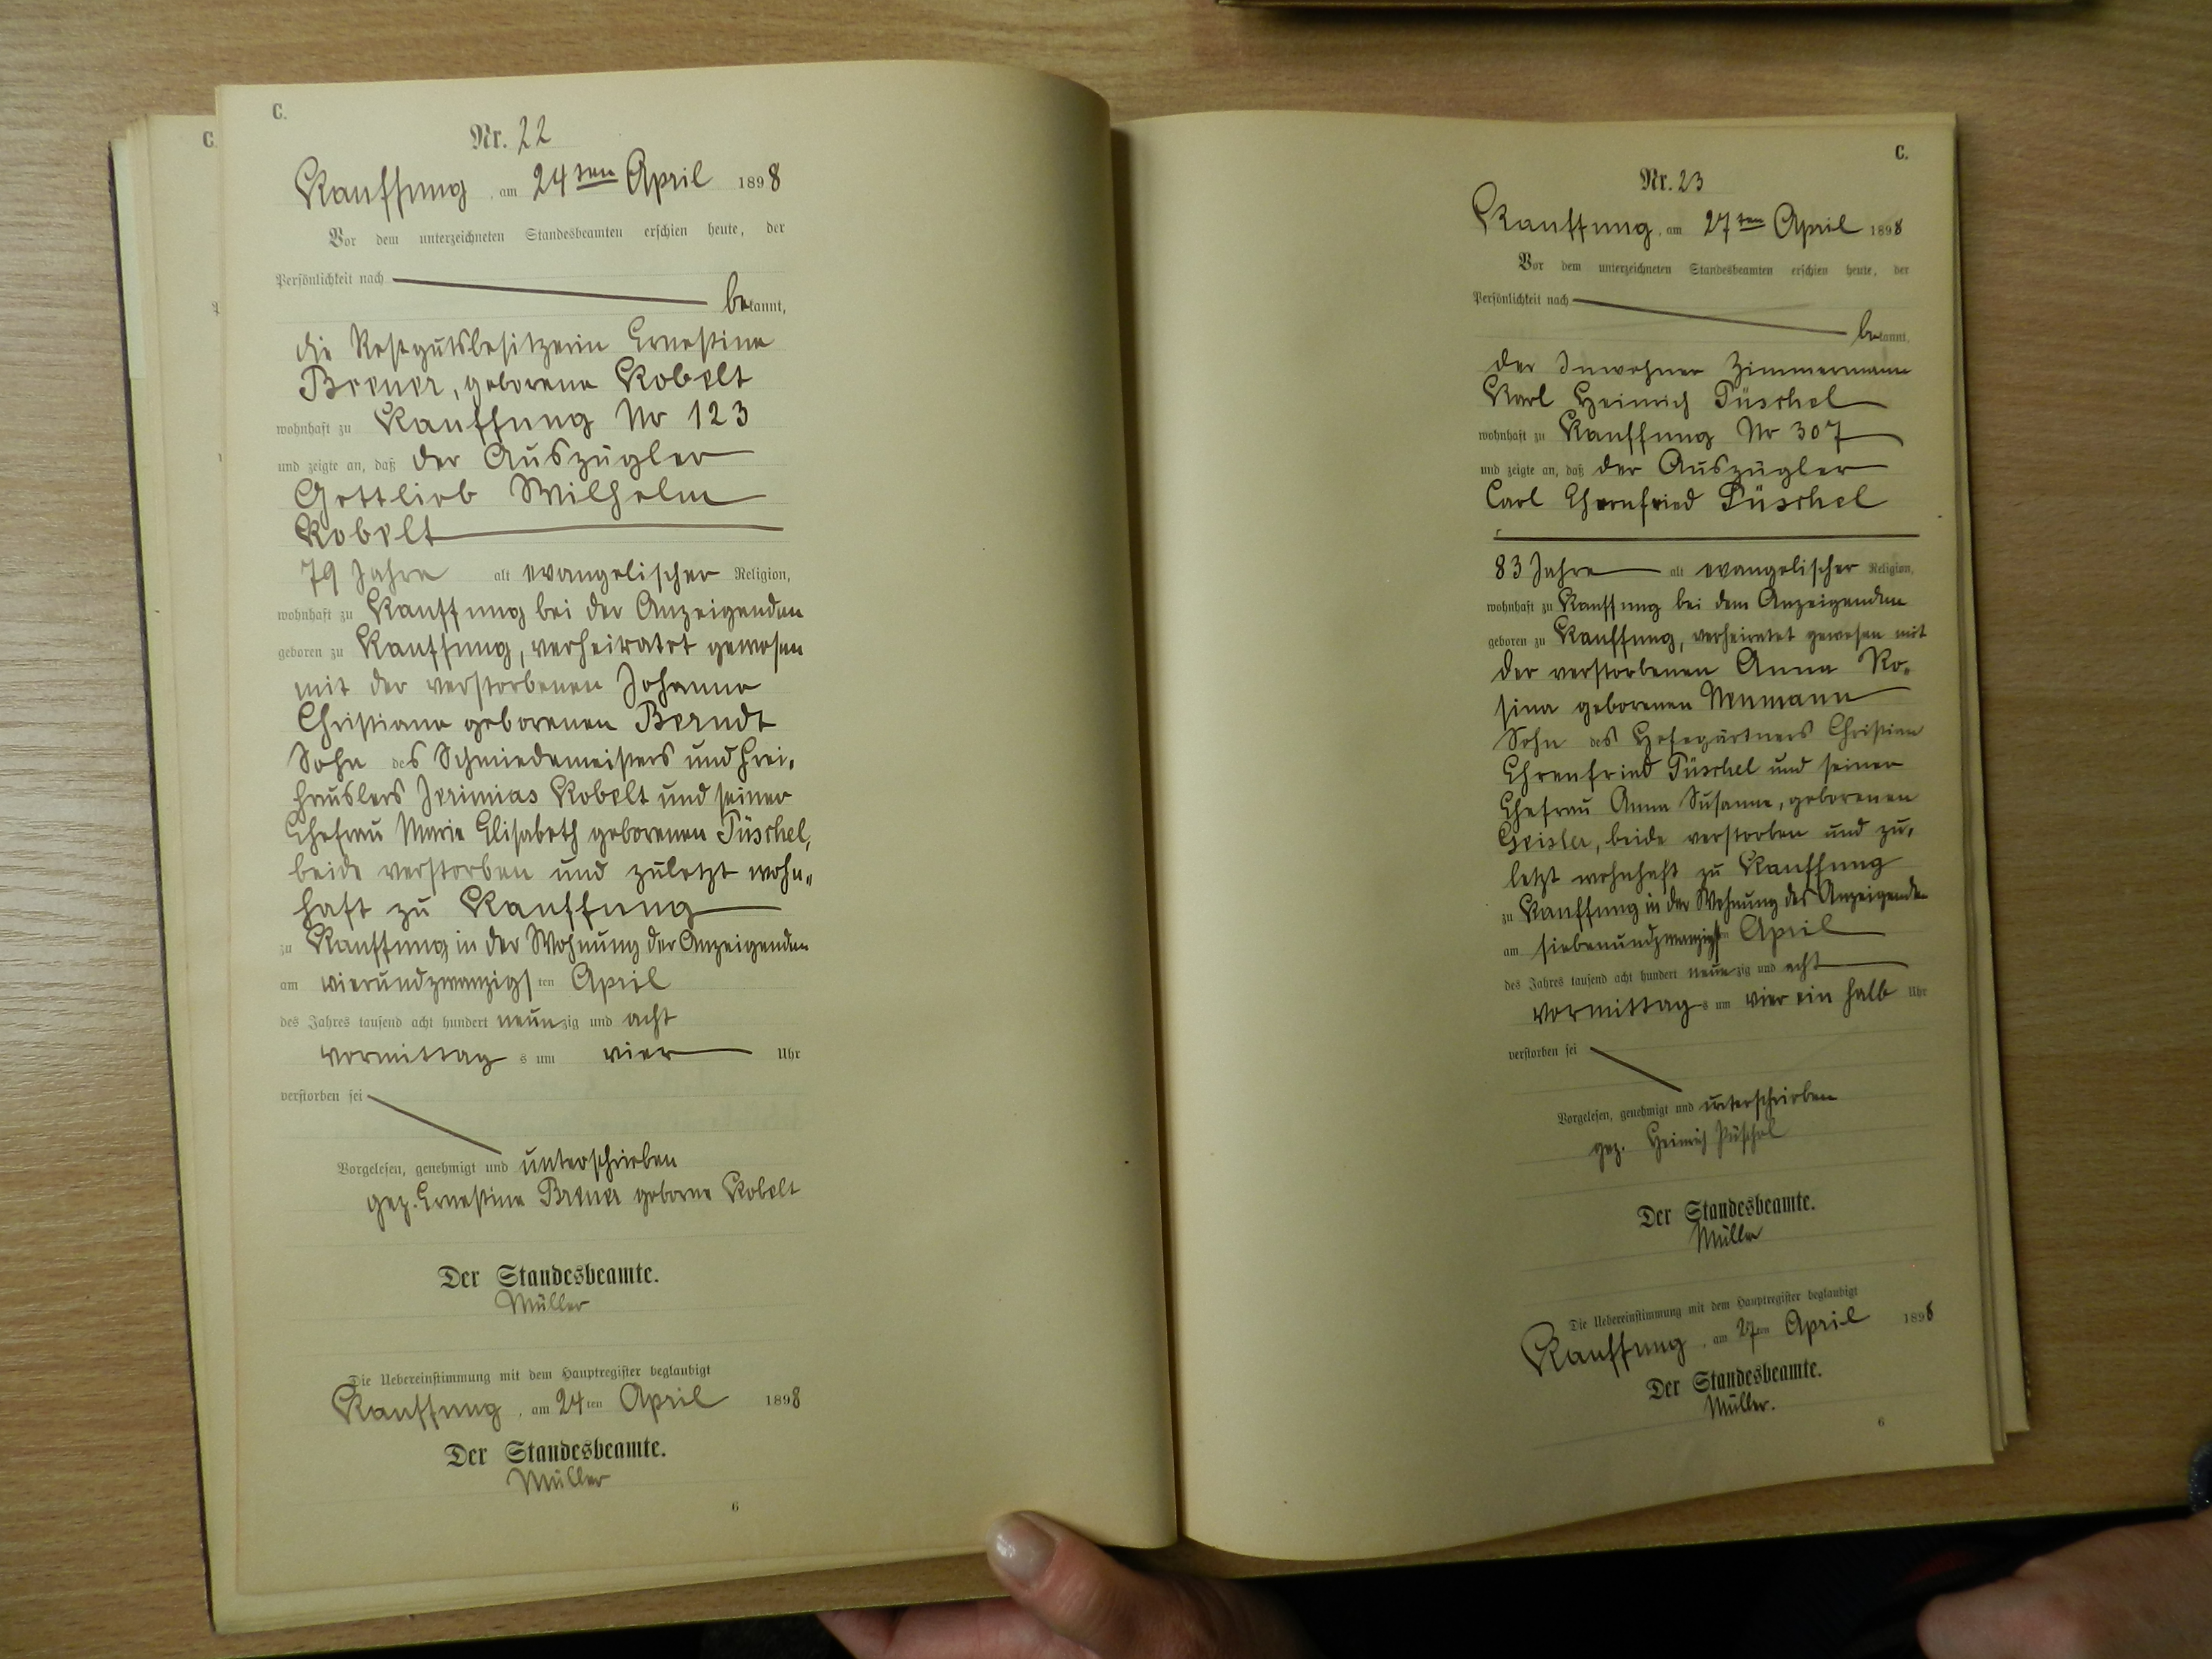 C.
Nr. 22
Kauffung, am 24ten April 1898
Vor dem unterzeichneten Standesbeamten erschien heute, der
Persönlichkeit nach
bekannt,
die Restgutsbesitzerin Ernestine
Brener, geborene Kobelt
wohnhaft zu Kauffung No 123
und zeigte an, daß der Auszügler
Gottlieb Wilhelm
Kobelt
79 Jahre alt evangelischer Religion,
wohnhaft zu Kauffung bei der Anzeigenden
geboren zu Kauffung, verheiratet gewesen
mit der verstorbenen Johanne
Christiane geborenen Berndt
Sohn des Schmiedemeisters und Frei-
häuslers Jerimias Kobelt und seiner
Ehefrau Marie Elisabeth geborenen Püschel,
beide verstorben und zuletzt wohn-
haft zu Kauffung
zu Kauffung in der Wohnung der Anzeigenden
am vierundzwanzigsten April
des Jahres tausend acht hundert neunzig und acht
vormittags um vier Uhr
verstorben sei
Vorgelesen, genehmigt und unterschrieben
gez. Ernestine Brener geborne Kobelt
Der Standesbeamte.
Müller
Die Uebereinstimmung mit dem Hauptregister beglaubigt
Kauffung, am 24ten April 1898
Der Standesbeamte.
Müller
6
C.
Nr. 23
Kauffung, am 27ten April 1898
Vor dem unterzeichneten Standesbeamten erschien heute, der
Persönlichkeit nach
bekannt,
der Inwohner Zimmermann
Karl Heinrich Püschel
wohnhaft zu Kauffung No 307
und zeigte an, daß der Auszügler
Carl Ehrenfried Püschel
83 Jahre alt evangelischer Religion,
wohnhaft zu Kauffung bei dem Anzeigenden
geboren zu Kauffung, verheiratet gewesen mit
der verstorbenen Anna Ro-
sina geborenen Neumann
Sohn des Hofegärtners Christian
Ehrenfried Püschel und seiner
Ehefrau Anna Susanne, geborenen
Geisler, beide verstorben und zu-
letzt wohnhaft zu Kauffung
zu Kauffung in der Wohnung des Anzeigenden
am siebenundzwanzigsten April
des Jahres tausend acht hundert neunzig und acht
vormittags um vier ein halb Uhr
verstorben sei
Vorgelesen, genehmigt und unterschrieben
gez. Heinrich Püschel
Der Standesbeamte.
Müller
Die Uebereinstimmung mit dem Hauptregister beglaubigt
Kauffung, am 27ten April 1898
Der Standesbeamte.
Müller.
6